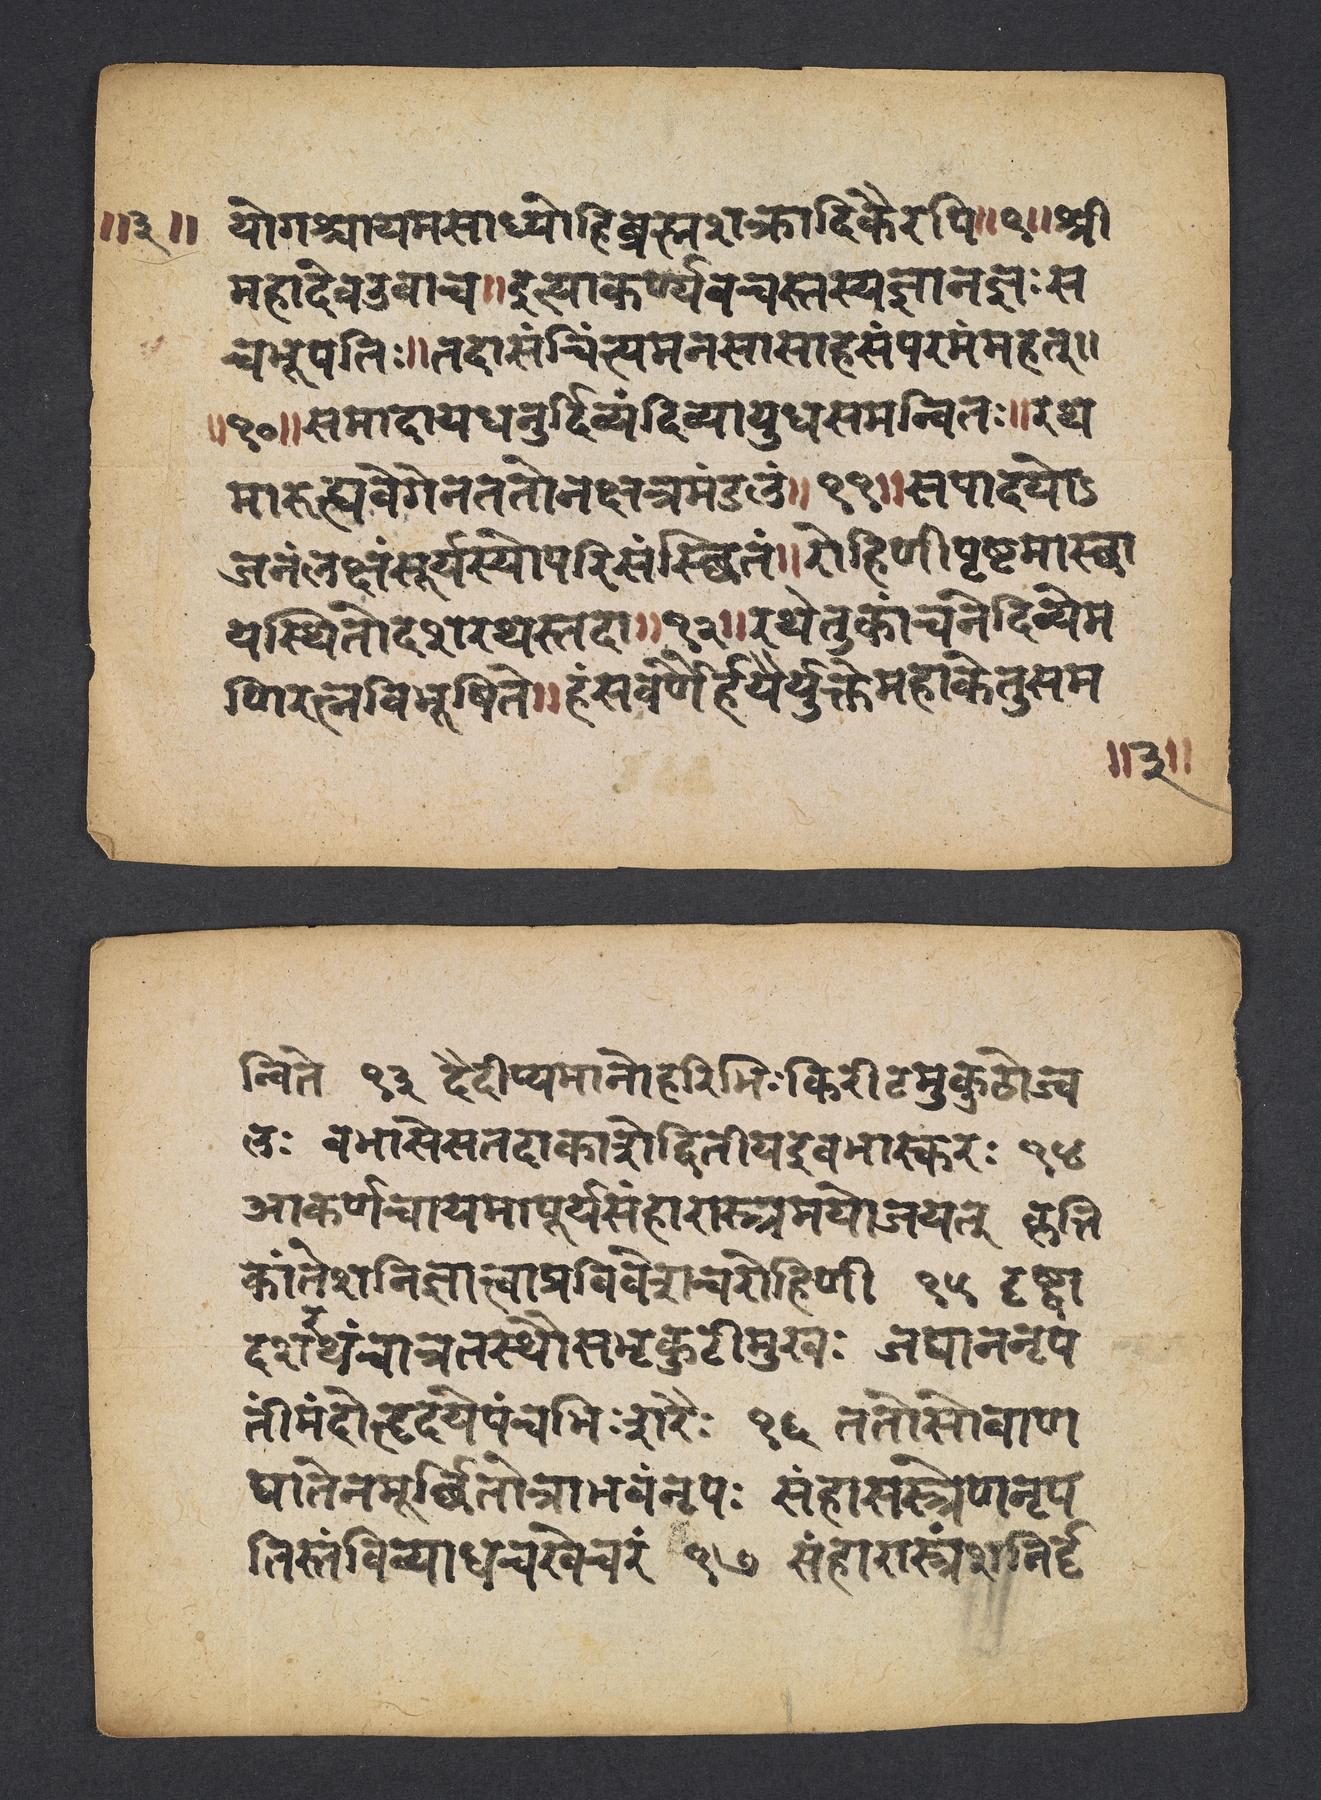 ॥३॥ योगश्चायमसाध्योहिब्रह्मशक्रादिकैरपि॥९॥श्री
महादेवउवाच॥इत्याकर्ण्यवचस्तस्यज्ञानज्ञः स
चभूपतिः॥तदासंचिंत्यमनसासाहसंपरमंमहत्॥
॥१०॥समादायधनुर्दिव्यंदिव्यायुधसमन्वितः॥रथ
मारुह्यवेगेनततोनक्षत्रमंडलं॥११॥सपादयोऽ
जनंलक्षंसूर्यस्योपरिसंस्थितं॥रोहिणीपृष्टमास्था
यस्थितोदशरथस्तदा॥१२॥रथेतुकांचनेदिव्येम
णिरत्नविभूषिते॥हंसवर्णैर्हयैर्युक्तेमहाकेतुसम
॥३॥
न्विते १३ दैदीप्यमानोहरिभिःकिरीटमुकुठोज्व
लः बभासेसतदाकारोद्वितीयइवभास्करः १४
आकर्णचायमापूर्यसंहारास्त्रमयोजयत् कृत्ति
कांतेशनिज्ञात्वाप्रविवेशचरोहिणी १५ दृष्ट्वा
दशरथंचाग्रतस्थौसभृकुटीमुखः जघाननृप
तींमंदोत्हृदयेपंचभिःशरैः १६ ततोसोबाण
घातेनमूर्छितोन्राभवंनृपः संहासस्त्रेणनृप
तिस्तंविव्याधचखेचरं १७ संहारास्त्रंशनिर्दृ